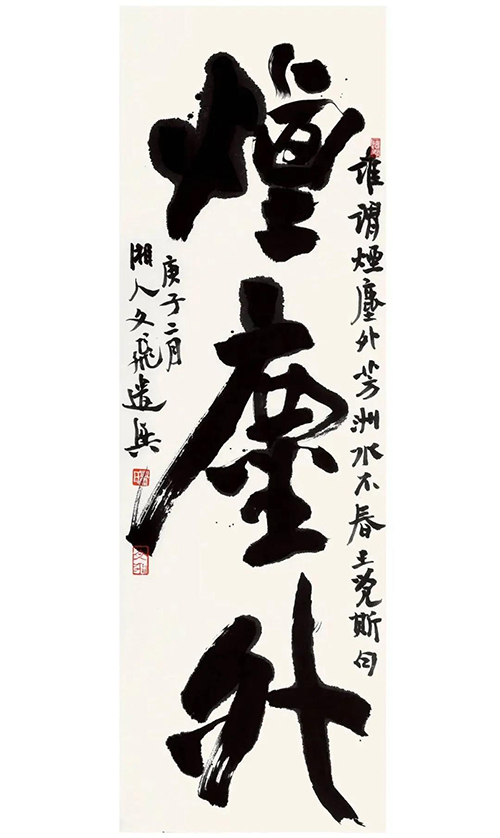 誰謂煙塵外芳洲水不春王覺斯句
煙塵外
庚子二月
湘人文飛遣興